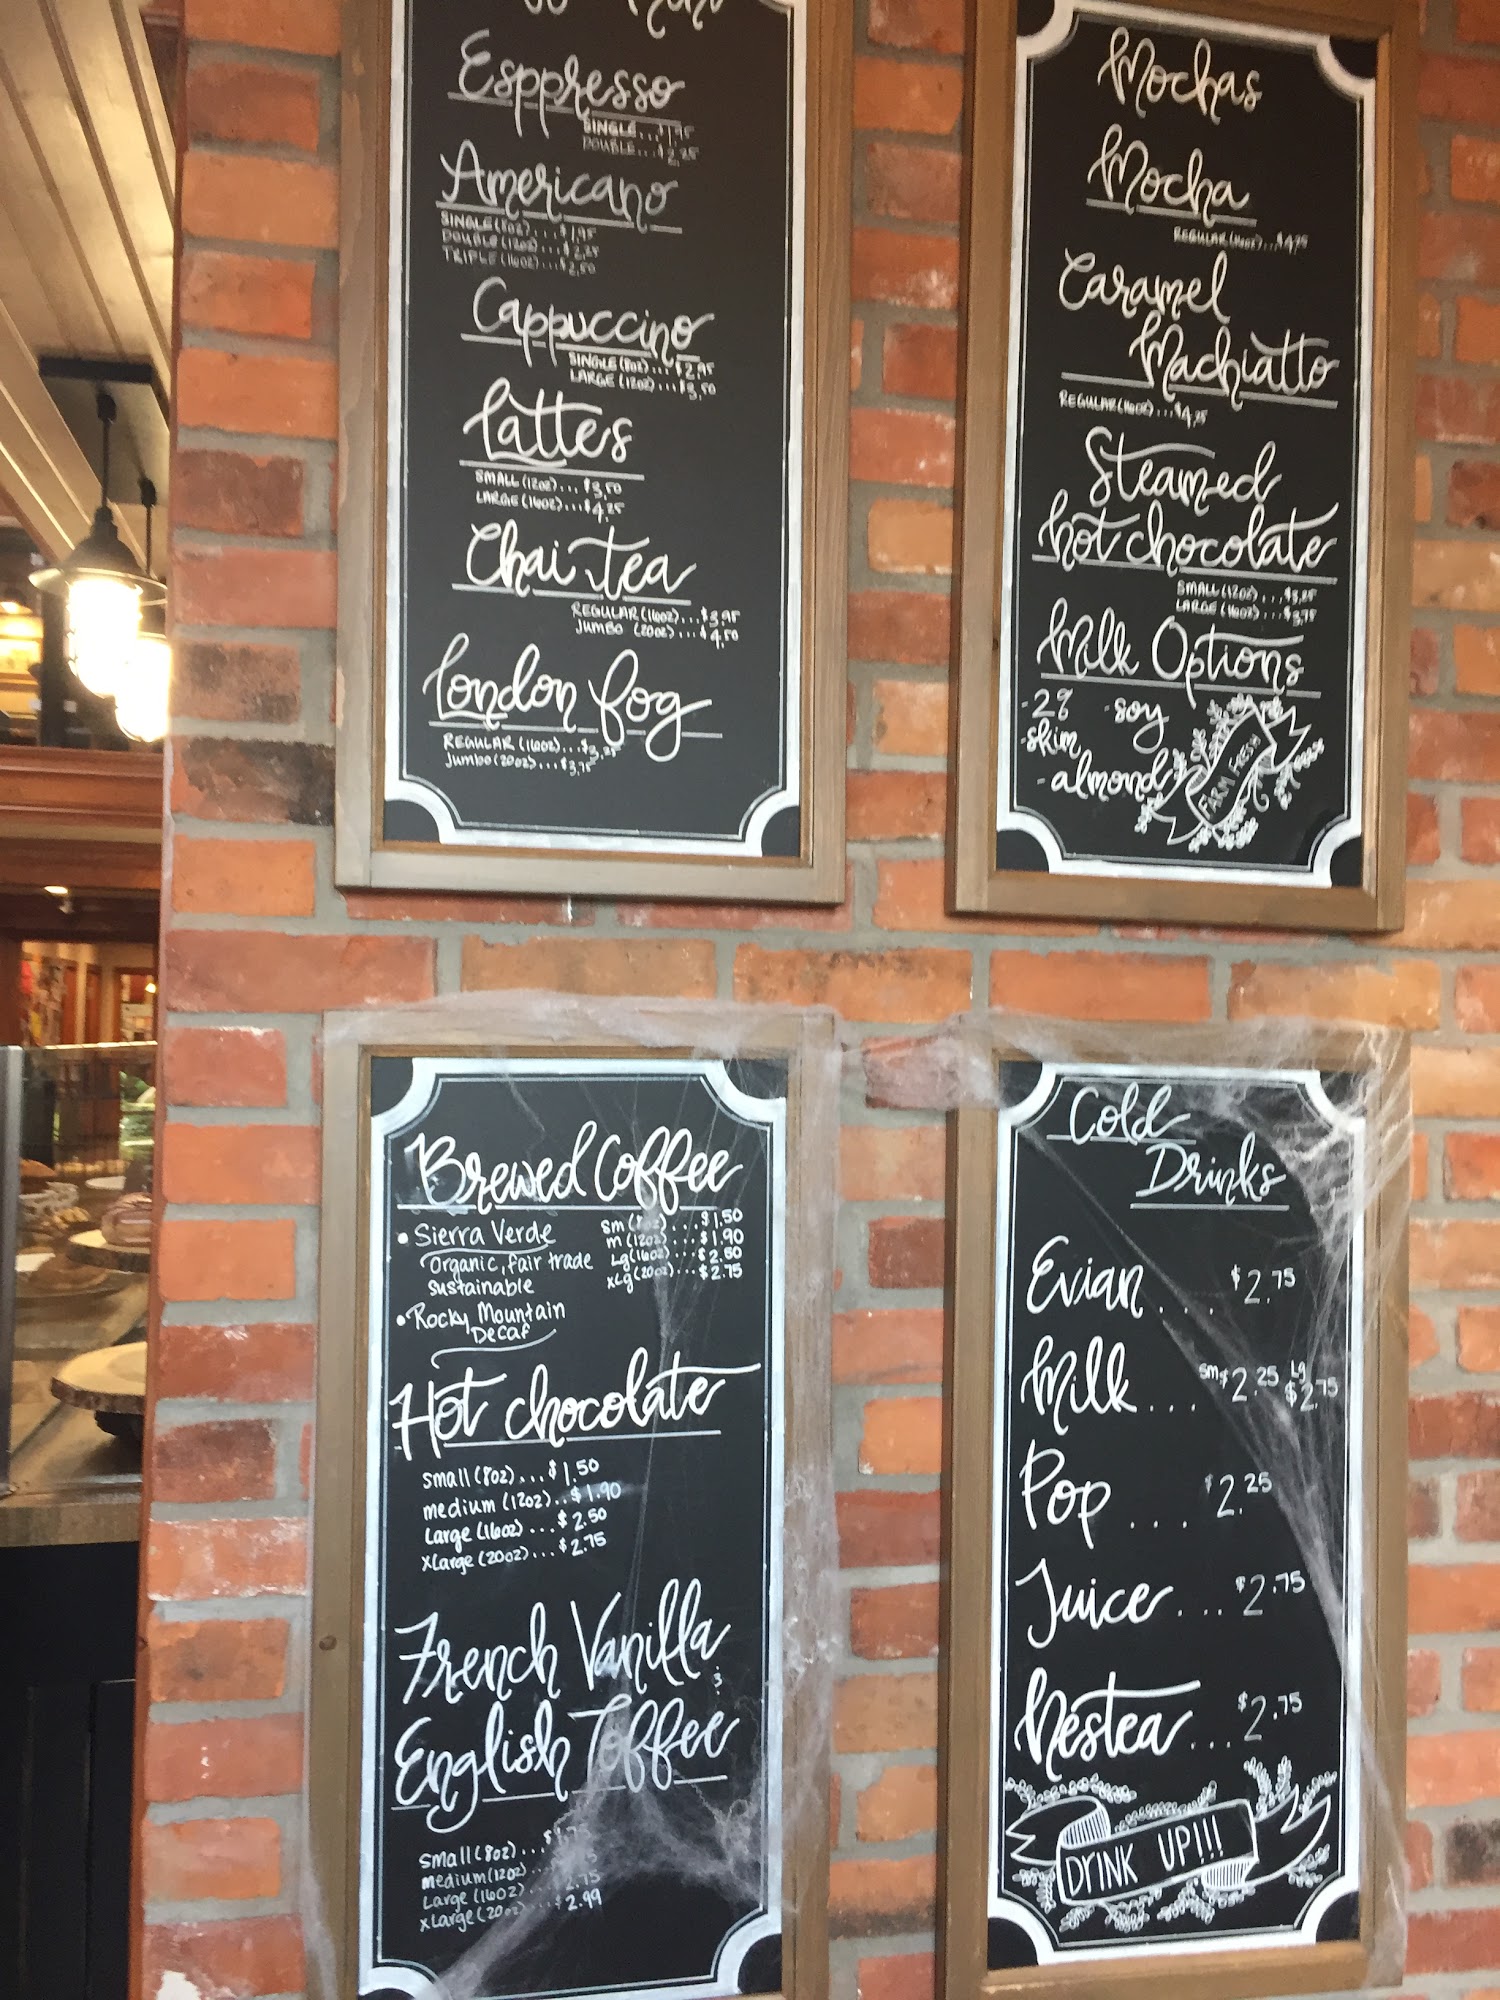 Esppresso
SINGLE...$1.95
DOUBLE...$2.25
Americano
SINGLE (8oz)...$1.95
DOUBLE (12oz)...$2.25
TRIPLE (16oz)...$2.50
Cappuccino
SINGLE (8oz)...$2.95
LARGE (12oz)...$3.50
Lattes
SMALL (12oz)...$3.50
LARGE (16oz)...$4.25
Chai Tea
REGULAR (16oz)...$3.95
JUMBO (20oz)...$4.50
London Fog
REGULAR (16oz)...$3.25
Jumbo (20oz)...$3.75
Mochas
Mocha
REGULAR (16oz)...$4.75
Caramel
Machiatto
REGULAR (16oz)...$4.25
Steamed
hot chocolate
SMALL (12oz)...$3.25
LARGE (16oz)...$3.75
Milk Options
-2% -soy
-skim
-almond
FARM FRESH
Brewed Coffee
• Sierra Verde
Organic, fair trade
sustainable
• Rocky Mountain
Decaf
Sm (8oz)...$1.50
m (12oz)...$1.90
Lg (16oz)...$2.50
xLg (20oz)...$2.75
Hot chocolate
small (8oz)...$1.50
medium (12oz)..$1.90
Large (16oz)...$2.50
xLarge (20oz)...$2.75
French Vanilla
&
English Toffee
small (8oz)...
medium (12oz)...
Large (16oz)...2.75
xLarge (20oz)...2.99
Cold
Drinks
Evian... $2.75
Milk... sm $2.25 Lg $2.75
Pop... $2.25
Juice... $2.75
Nestea... $2.75
DRINK UP!!!